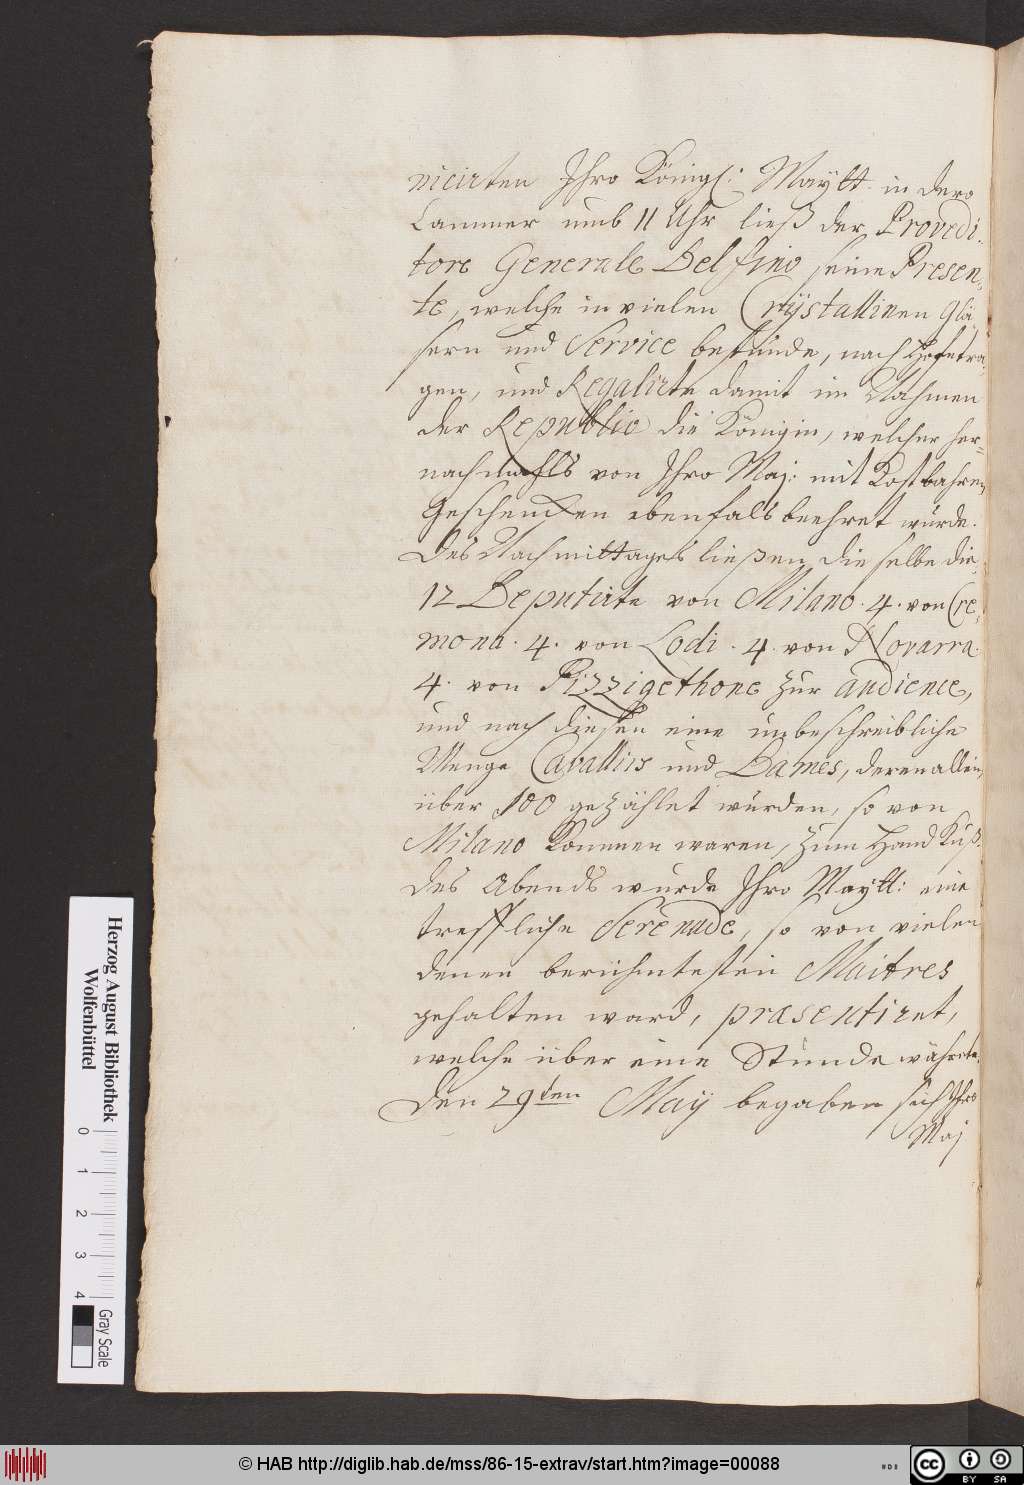 nicirten Ihro Königl: Maytt. in dero
Cammer umb 11 Uhr ließ der Provedi-
tore Generale Delfino seine Presen-
te, welche in vielen Crÿstallinen Glä-
sern und Service bestünde, nach Hofe tra-
gen, und Regalirte damit im Nahmen
der Republic die Königin, welcher her-
nachmahls von Ihro Maj: mit Kostbahren
Geschencken ebenfals beehret würde.
Des Nachmittages ließen die selbe die
12 Deputirte von Milano. 4. von Cre-
mona. 4. von Lodi. 4. von Novarra.
4. von Pizzigethone zur audience,
und nach diesen eine unbeschreibliche
Menge Cavallirs und Dames, deren allein
über 100 gezählet würden, so von
Milano kommen waren, zum Hand Kuß.
Des Abends wurde Ihro Maytt: eine
treffliche Serenade, so von vielen
denen berühmtesten Maitres
gehalten ward, præsentiret,
welche über eine Stunde währete.
Den 29ten Maÿ begaben sich Ihro
Maj
Herzog August Bibliothek
Wolfenbüttel
0 1 2 3 4
Gray Scale
© HAB http://diglib.hab.de/mss/86-15-extrav/start.htm?image=00088
cc BY SA